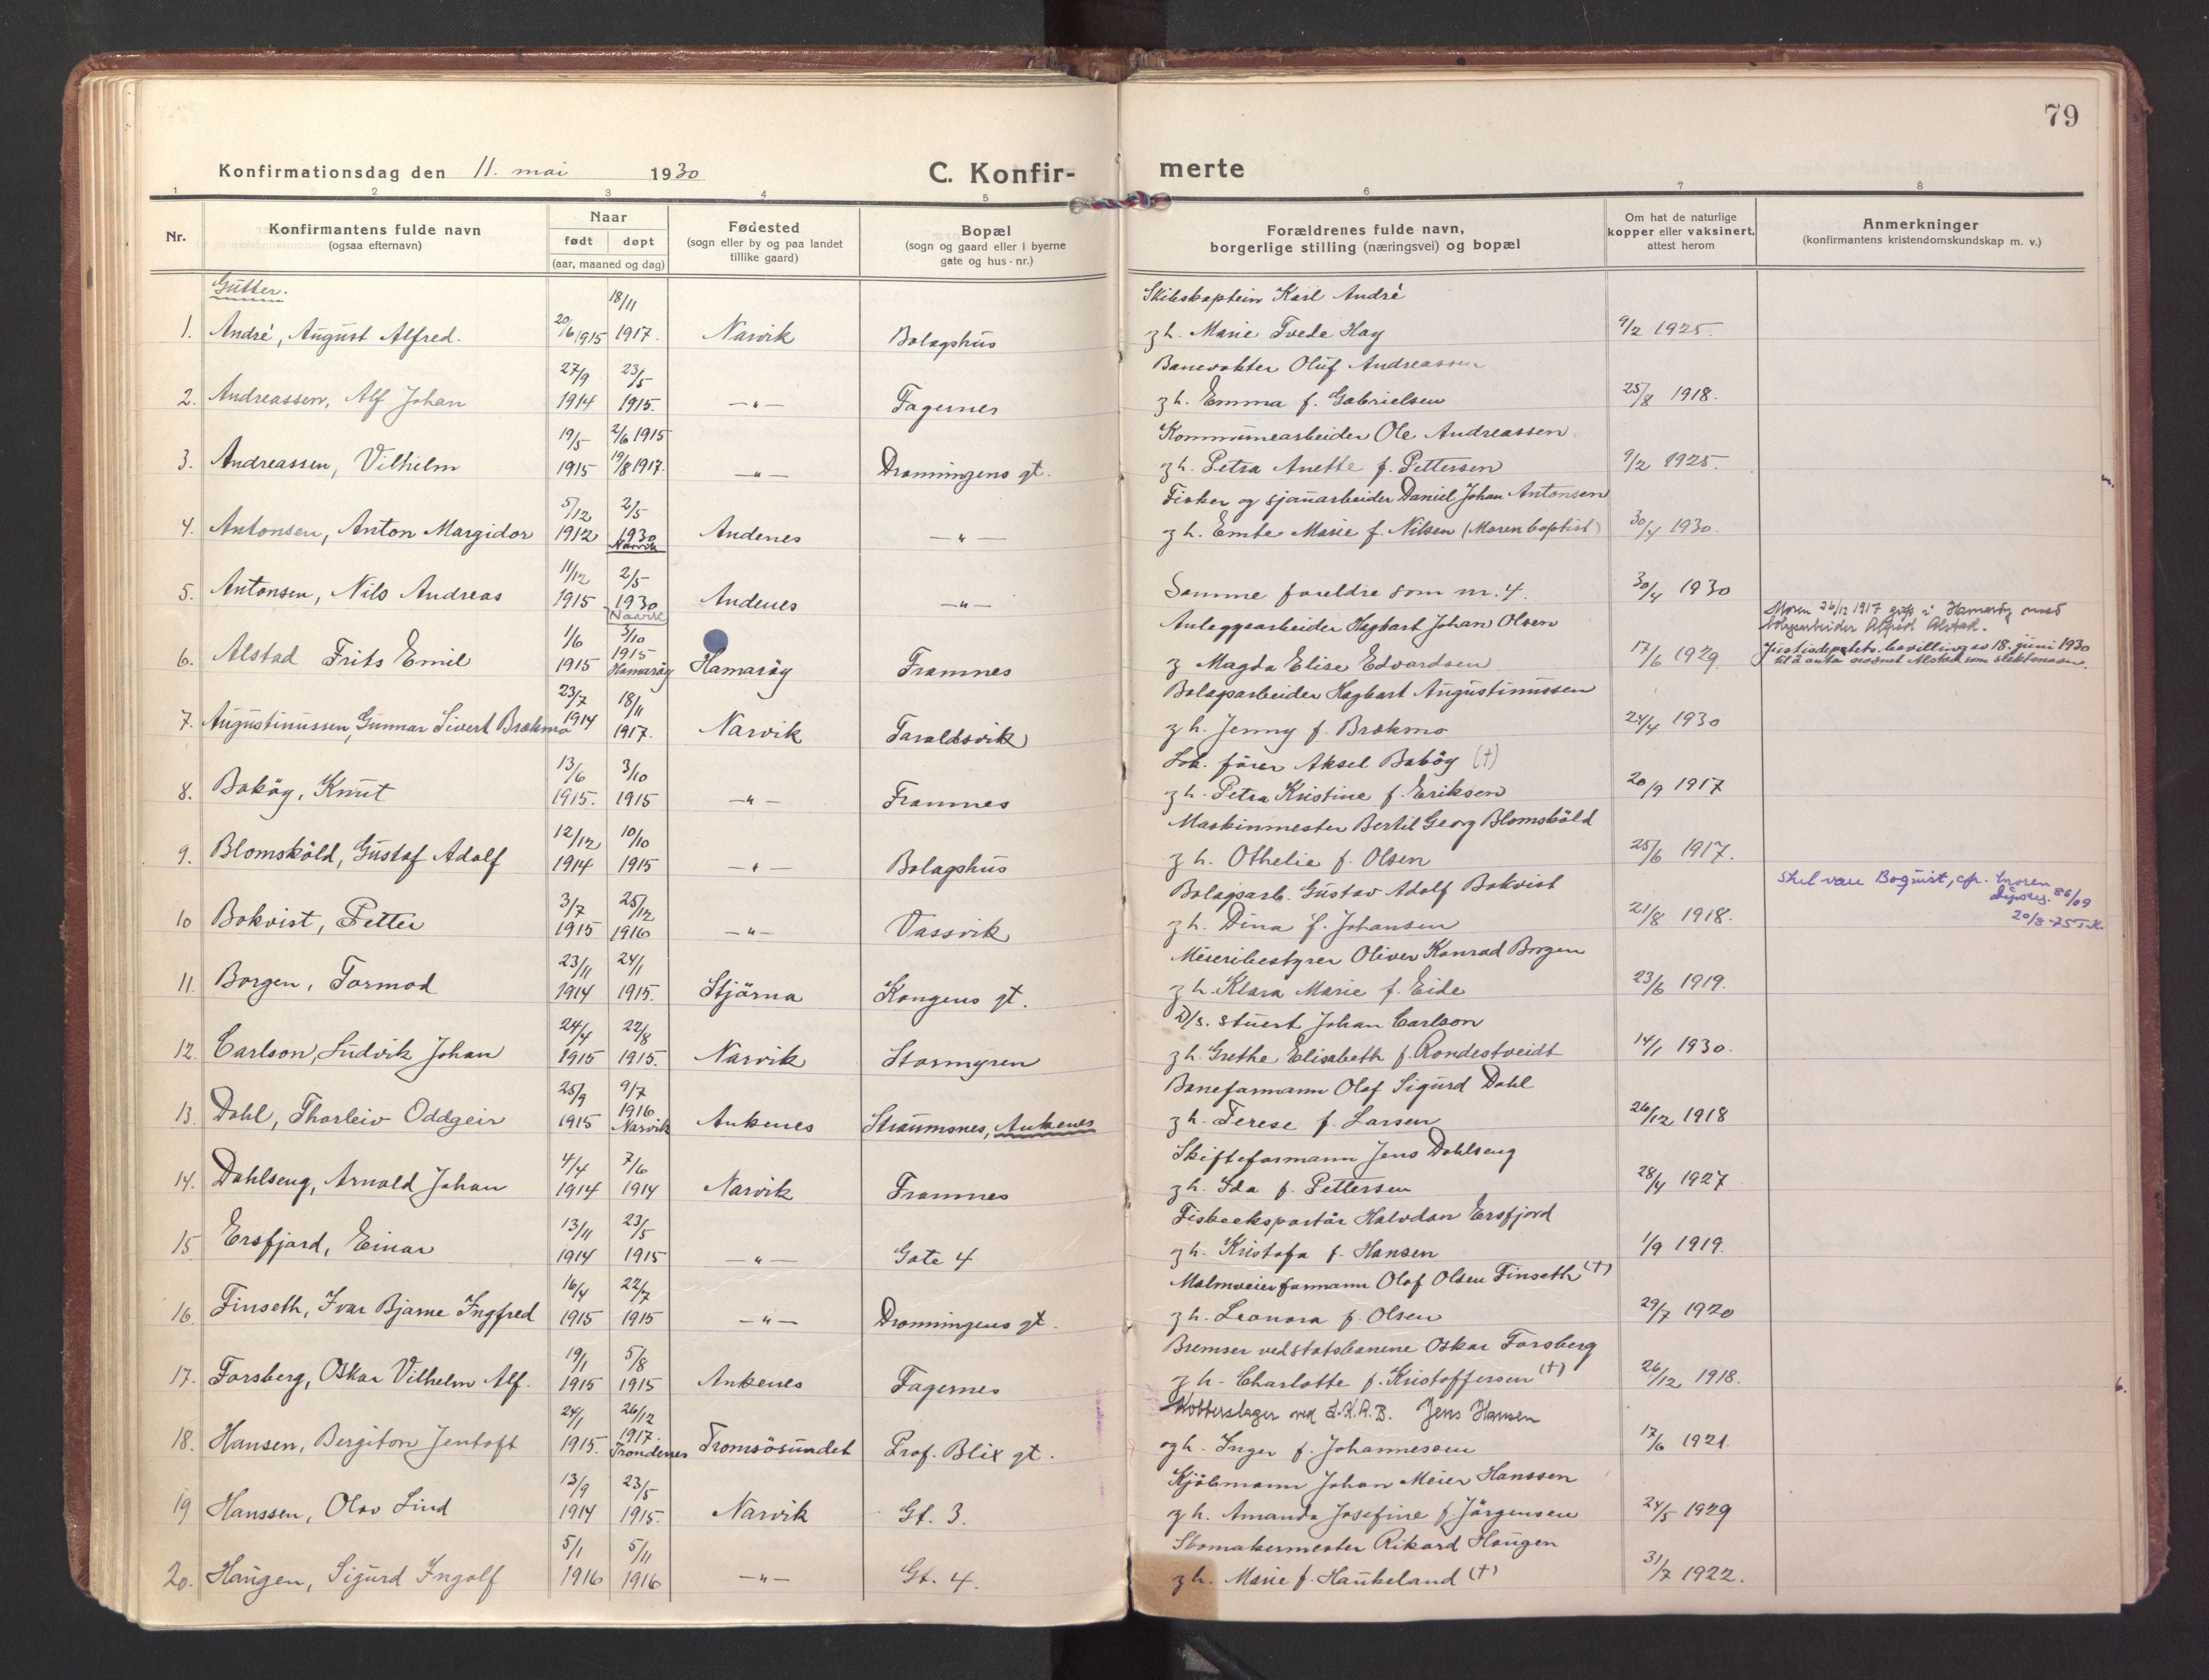 79
Konfirmationsdag den 11. mai 1930
C. Konfir-
merte
1 2 3 4 5 6 7 8
Nr.
Konfirmantens fulde navn
(ogsaa efternavn)
Naar
født døpt
(aar, maaned og dag)
Fødested
(sogn eller by og paa landet
tillike gaard)
Bopæl
(sogn og gaard eller i byerne
gate og hus-nr.)
Forældrenes fulde navn,
borgerlige stilling (næringsvei) og bopæl
Om hat de naturlige
kopper eller vaksinert,
attest herom
Anmerkninger
(konfirmantens kristendomskundskap m. v.)
Gutter.
18/11 Skibskaptein Karl André
1. André, August Alfred. 20/6 1915 1917. Narvik Bolagshus g h. Marie Tvede Hay 9/2 1925.
27/9 23/5 Banevokter Oluf Andreassen
2. Andreassen, Alf Johan 1914 1915. —"— Fagernes g h. Emma f. Gabrielsen 25/8 1918.
19/5 2/6 1915 Kommunearbeider Ole Andreassen
3. Andreassen, Vilhelm 1915 19/8 1917. —"— Dronningens gt. g h. Petra Anette f. Pettersen 9/2 1925.
5/12 2/5 Fisker og sjauarbeider Daniel Johan Antonsen
4. Antonsen, Anton Margidor 1912 1930 Narvik Andenes —"— g h. Emte Marie f. Nilsen (Moren baptist) 30/4 1930.
11/12 2/5
5. Antonsen, Nils Andreas 1915 1930 Narvik Andenes —"— Samme foreldre som nr. 4. 30/4 1930
1/6 3/10 Anleggsarbeider Hagbart Johan Olsen
Moren 26/12 1917 gift i Hamarøy med
bolagsarbeider Alfred Alstad.
6. Alstad Frits Emil 1915 1915 Hamarøy Hamarøy Framnes g Magda Elise Edvardsen 17/6 1929
Justisdepartets. bevilling av 18. juni 1930
til å anta navnet Alstad som slektsnavn.
23/7 18/11 Bolagsarbeider Hagbart Augustinussen
7. Augustinussen, Gunnar Sivert Brækmo 1914 1917. Narvik Taraldsvik g h. Jenny f. Brækmo 24/4 1930
13/6 3/10 Lok. fører Aksel Bakøy (†)
8. Bakøy, Knut 1915. 1915 —"— Framnes g h. Petra Kristine f. Eriksen 20/9 1917
12/12 10/10 Maskinmester Bertil Georg Blomsköld
9. Blomsköld, Gustaf Adolf 1914 1915 —"— Bolagshus g h. Othelie f. Olsen 25/6 1917.
3/7 25/12 Bolagsarb. Gustav Adolf Bokvist
Skal være Boquist, cfr. moren
86/09
20/8-75 T.K.
10 Bokvist, Petter 1915 1916 —"— Vassvik g h. Dina f. Johansen 21/8 1918.
23/11 24/1 Meieribestyrer Oliver Konrad Borgen
11. Borgen, Tormod 1914 1915. Stjørna Kongens gt. g h. Klara Marie f. Eide 23/6 1919.
24/4 22/8 D/s. stuert Johan Carlson
12. Carlson, Ludvik Johan 1915 1915. Narvik Stormyren g h. Grethe Elisabeth f. Rondestveidt 14/1 1930.
25/9 9/7 Baneformann Olaf Sigurd Dahl
13. Dahl, Thorleiv Oddgeir 1915 1916 Narvik Ankenes Straumsnes, Ankenes g h. Terese f. Larsen 26/12 1918
4/4 7/6 Skifteformann Jens Dahlseng
14. Dahlseng, Arnold Johan 1914 1914 Narvik Framnes g h. Ida f. Pettersen 28/4 1927
13/11 23/5 Fiskeeksportør Halvdan Ersfjord
15 Ersfjord, Einar 1914 1915 —"— Gate 4 g h. Kristofa f. Hansen 1/9 1919.
16/4 22/7 Malmveierformann Olaf Olsen Finseth (†)
16. Finseth, Ivar Bjarne Ingfred 1915 1915 —"— Dronningens gt. g h. Leonora f. Olsen 29/7 1920
19/1 5/8 Bremser ved statsbanene Oskar Forsberg
17. Forsberg, Oskar Vilhelm Alf. 1915 1915 Ankenes Fagernes g h. Charlotte f. Kristoffersen (†) 26/12 1918.
24/1 26/12 Kobberslager ved L.K.A.B. Jens Hansen
18. Hansen, Bergiton Jentoft 1915. 1917. Trondenes Tromsøsundet Prof. Blix gt. og h. Inger f. Johannessen 17/6 1921.
13/9 23/5 Kjøbmann Johan Meier Hanssen
19 Hanssen, Olav Lind 1914 1915. Narvik Gt. 3. g h. Amanda Josefine f. Jørgensen 24/5 1929
5/1 5/11 Skomakermester Rikard Haugen
20. Haugen, Sigurd Ingolf 1916 1916 —"— Gt. 4. g h. Marie f. Haukeland (†) 31/7 1922.